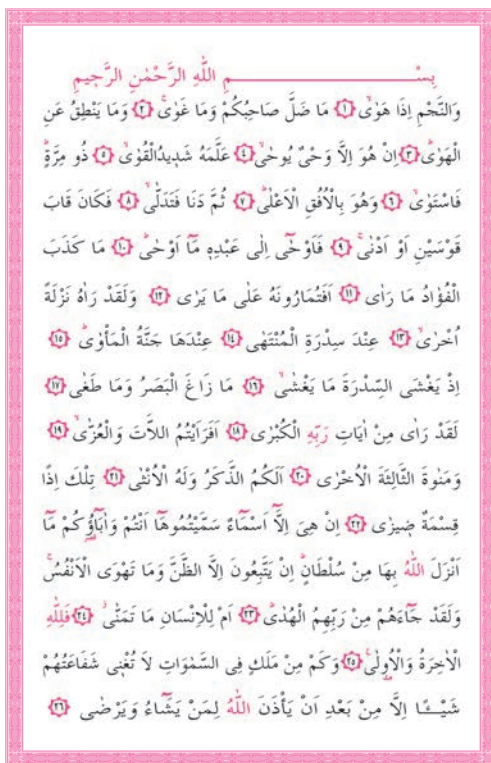 بِسْــــــــمِ اللّٰهِ الرَّحْمٰنِ الرَّحٖيمِ
وَالنَّجْمِ اِذَا هَوٰىۙ ﴿١﴾ مَا ضَلَّ صَاحِبُكُمْ وَمَا غَوٰىۚ ﴿٢﴾ وَمَا يَنْطِقُ عَنِ
الْهَوٰىؕ ﴿٣﴾ اِنْ هُوَ اِلَّا وَحْىٌ يُوحٰىۙ ﴿٤﴾ عَلَّمَهُ شَدٖيدُالْقُوٰىۙ ﴿٥﴾ ذُو مِرَّةٍؕ
فَاسْتَوٰىۙ ﴿٦﴾ وَهُوَ بِالْاُفُقِ الْاَعْلٰىؕ ﴿٧﴾ ثُمَّ دَنَا فَتَدَلّٰىۙ ﴿٨﴾ فَكَانَ قَابَ
قَوْسَيْنِ اَوْ اَدْنٰىۚ ﴿٩﴾ فَاَوْحٰٓى اِلٰى عَبْدِهٖ مَٓا اَوْحٰىؕ ﴿١٠﴾ مَا كَذَبَ
الْفُؤَادُ مَا رَاٰى ﴿١١﴾ اَفَتُمَارُونَهُ عَلٰى مَا يَرٰى ﴿١٢﴾ وَلَقَدْ رَاٰهُ نَزْلَةً
اُخْرٰىۙ ﴿١٣﴾ عِنْدَ سِدْرَةِ الْمُنْتَهٰى ﴿١٤﴾ عِنْدَهَا جَنَّةُ الْمَأْوٰىؕ ﴿١٥﴾
اِذْ يَغْشَى السِّدْرَةَ مَا يَغْشٰىۙ ﴿١٦﴾ مَا زَاغَ الْبَصَرُ وَمَا طَغٰى ﴿١٧﴾
لَقَدْ رَاٰى مِنْ اٰيَاتِ رَبِّهِ الْكُبْرٰى ﴿١٨﴾ اَفَرَاَيْتُمُ اللَّاتَ وَالْعُزّٰىۙ ﴿١٩﴾
وَمَنٰوةَ الثَّالِثَةَ الْاُخْرٰى ﴿٢٠﴾ اَلَكُمُ الذَّكَرُ وَلَهُ الْاُنْثٰى ﴿٢١﴾ تِلْكَ اِذًا
قِسْمَةٌ ضٖيزٰى ﴿٢٢﴾ اِنْ هِىَ اِلَّٓا اَسْمَٓاءٌ سَمَّيْتُمُوهَٓا اَنْتُمْ وَاٰبَٓاؤُ۬كُمْ مَٓا
اَنْزَلَ اللّٰهُ بِهَا مِنْ سُلْطَانٍؕ اِنْ يَتَّبِعُونَ اِلَّا الظَّنَّ وَمَا تَهْوَى الْاَنْفُسُۚ
وَلَقَدْ جَٓاءَهُمْ مِنْ رَبِّهِمُ الْهُدٰىؕ ﴿٢٣﴾ اَمْ لِلْاِنْسَانِ مَا تَمَنّٰىؗ ﴿٢٤﴾ فَلِلّٰهِ
الْاٰخِرَةُ وَالْاُو۫لٰى۟ ﴿٢٥﴾ وَكَمْ مِنْ مَلَكٍ فِى السَّمٰوَاتِ لَا تُغْنٖى شَفَاعَتُهُمْ
شَيْـًٔا اِلَّا مِنْ بَعْدِ اَنْ يَأْذَنَ اللّٰهُ لِمَنْ يَشَٓاءُ وَيَرْضٰى ﴿٢٦﴾